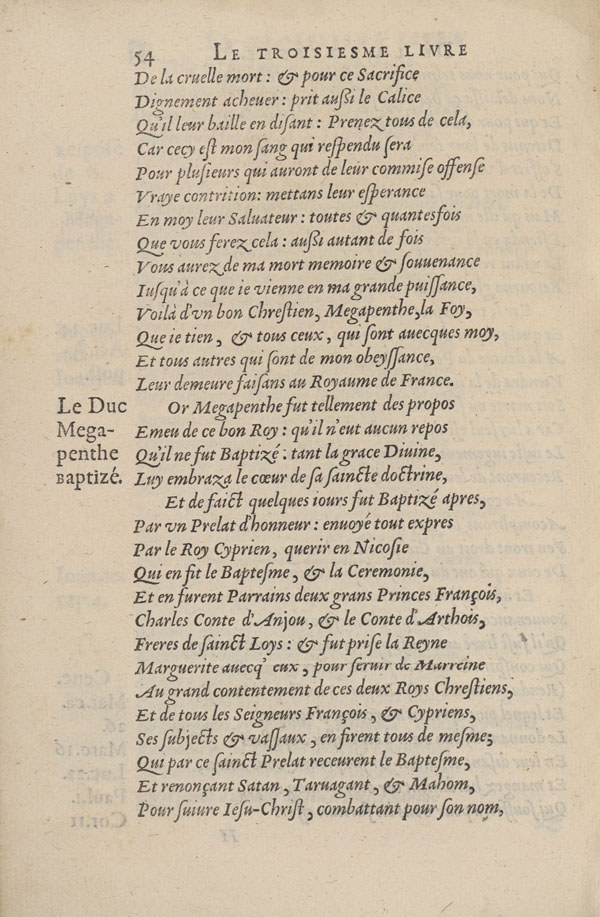 54 LE TROISIESME LIVRE
De la cruelle mort : & pour ce Sacrifice
Dignement acheuer : prit außi le Calice
Qu'il leur baille en disant : Prenez tous de cela,
Car cecy est mon sang qui respendu sera
Pour plusieurs qui auront de leur commise offense
Vraye contrition: mettans leur esperance
En moy leur Saluateur : toutes & quantesfois
Que vous ferez cela : außi autant de fois
Vous aurez de ma mort memoire & souuenance
Iusqu'à ce que ie vienne en ma grande puissance,
Voilà d'vn bon Chrestien, Megapenthe, la Foy,
Que ie tien, & tous ceux, qui sont auecques moy,
Et tous autres qui sont de mon obeyssance,
Leur demeure faisans au Royaume de France.
Le Duc Mega-
penthe
Baptizé.
Or Megapenthe fut tellement des propos
Emeu de ce bon Roy : qu'il n'eut aucun repos
Qu'il ne fut Baptizé : tant la grace Diuine,
Luy embraza le cœur de sa saincte doctrine,
Et de faict quelques iours fut Baptizé apres,
Par vn Prelat d'honneur : enuoyé tout expres
Par le Roy Cyprien, querir en Nicosie
Qui en fit le Baptesme, & la Ceremonie,
Et en furent Parrains deux grans Princes François,
Charles Conte d'Anjou, & le Conte d'Arthois,
Freres de sainct Loys : & fut prise la Reyne
Marguerite auecq' eux, pour seruir de Marreine
Au grand contentement de ces deux Roys Chrestiens,
Et de tous les Seigneurs François, & Cypriens,
Ses subjects & vassaux, en firent tous de mesme;
Qui par ce sainct Prelat receurent le Baptesme,
Et renonçant Satan, Taruagant, & Mahom,
Pour suiure Iesu-Christ, combattant pour son nom,